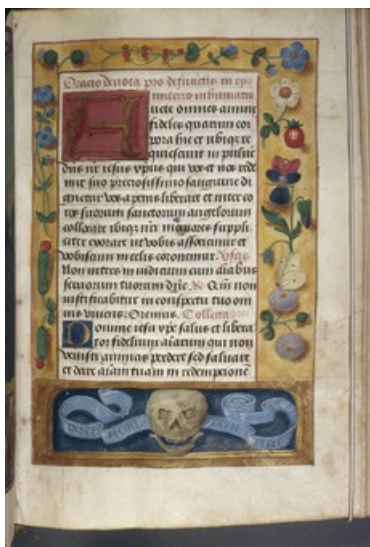 Oracio devota pro defunctis in cy
miterio inhumatis
Avete omnes anime
fideles quarum cor
pora hic et ubique re
quiescunt in pulve
dns nr iesus xpus qui vos et nos rede
mit suo preciosissimo sanguine di
gnetur vos a penis liberare et inter co
ros suorum sanctorum angelorum
collocare ibique nri suppli
citer exorare ut vobis associemur et
vobiscum in celis coronemur.
Non intres in iudicium cum
servorum tuorum dne. R. Quia non
iustificabitur in conspectu tuo om
nis vivens. Oremus. Collecta
Domine iesu xpe salus et libera
tor fidelium aiarum qui non
venisti animas perdere sed salvare
et dare aiam tuam in redemptione
DISCE MORI